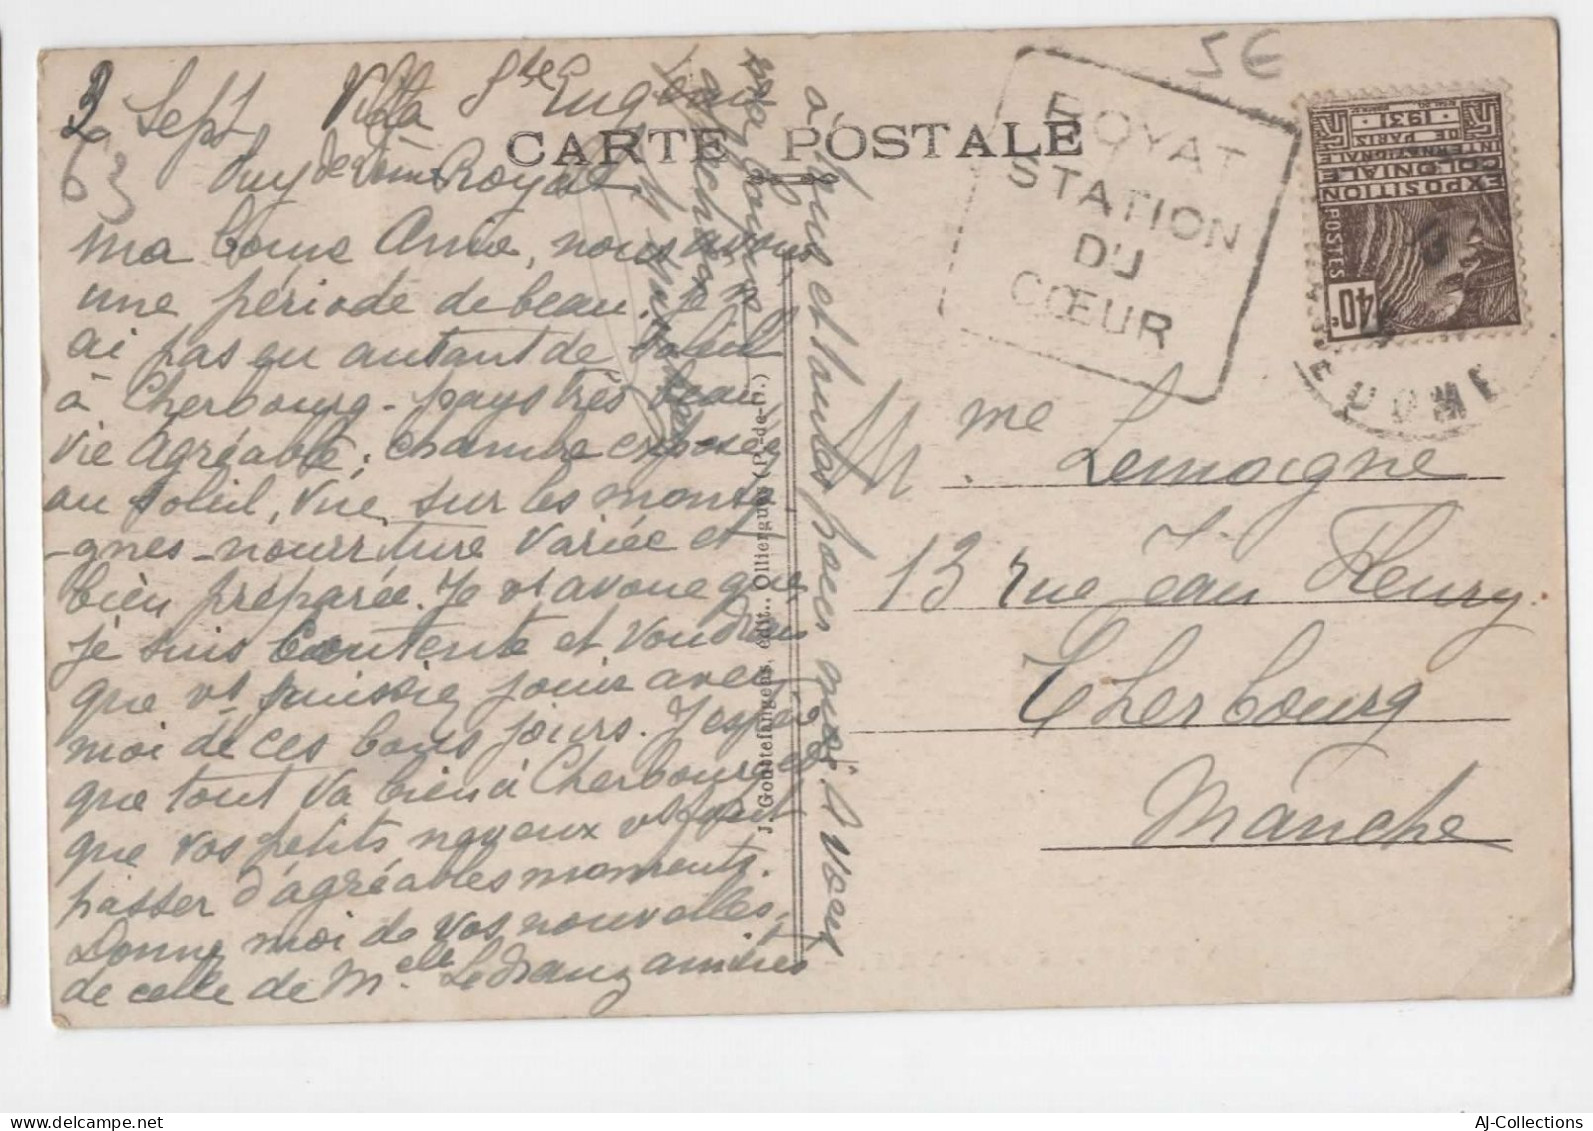 5€
3 Sept Villa Ste Eugénie
63 Puy de Dôme Royat
CARTE POSTALE
Ma bonne Amie, nous avons
une période de beau. Je n'
ai pas eu autant de soleil
à Cherbourg - pays très beau
vie agréable, chambre exposée
au soleil, vue sur les monta
-gnes - nourriture variée et
bien préparée. Je vs avoue que
je suis contente et voudrais
que vs puissiez jouir avec
moi de ces bons jours. J'espère
que tout va bien à Cherbourg et
que vos petits neveux vs font
passer d'agréables moments.
Donnez moi de vos nouvelles,
de celle de Melle Ledranz amitiés
à tous et toutes pour moi
J. Gouttefangeas, édit., Olliergues (P.-de-D.)
ROYAT
STATION
DU
CŒUR
EXPOSITION
COLONIALE
INTERNATIONALE
DE PARIS
1931
POSTES
40c
Mme Lemoigne
13 rue Jean Fleury
Cherbourg
Manche
AJ-Collections